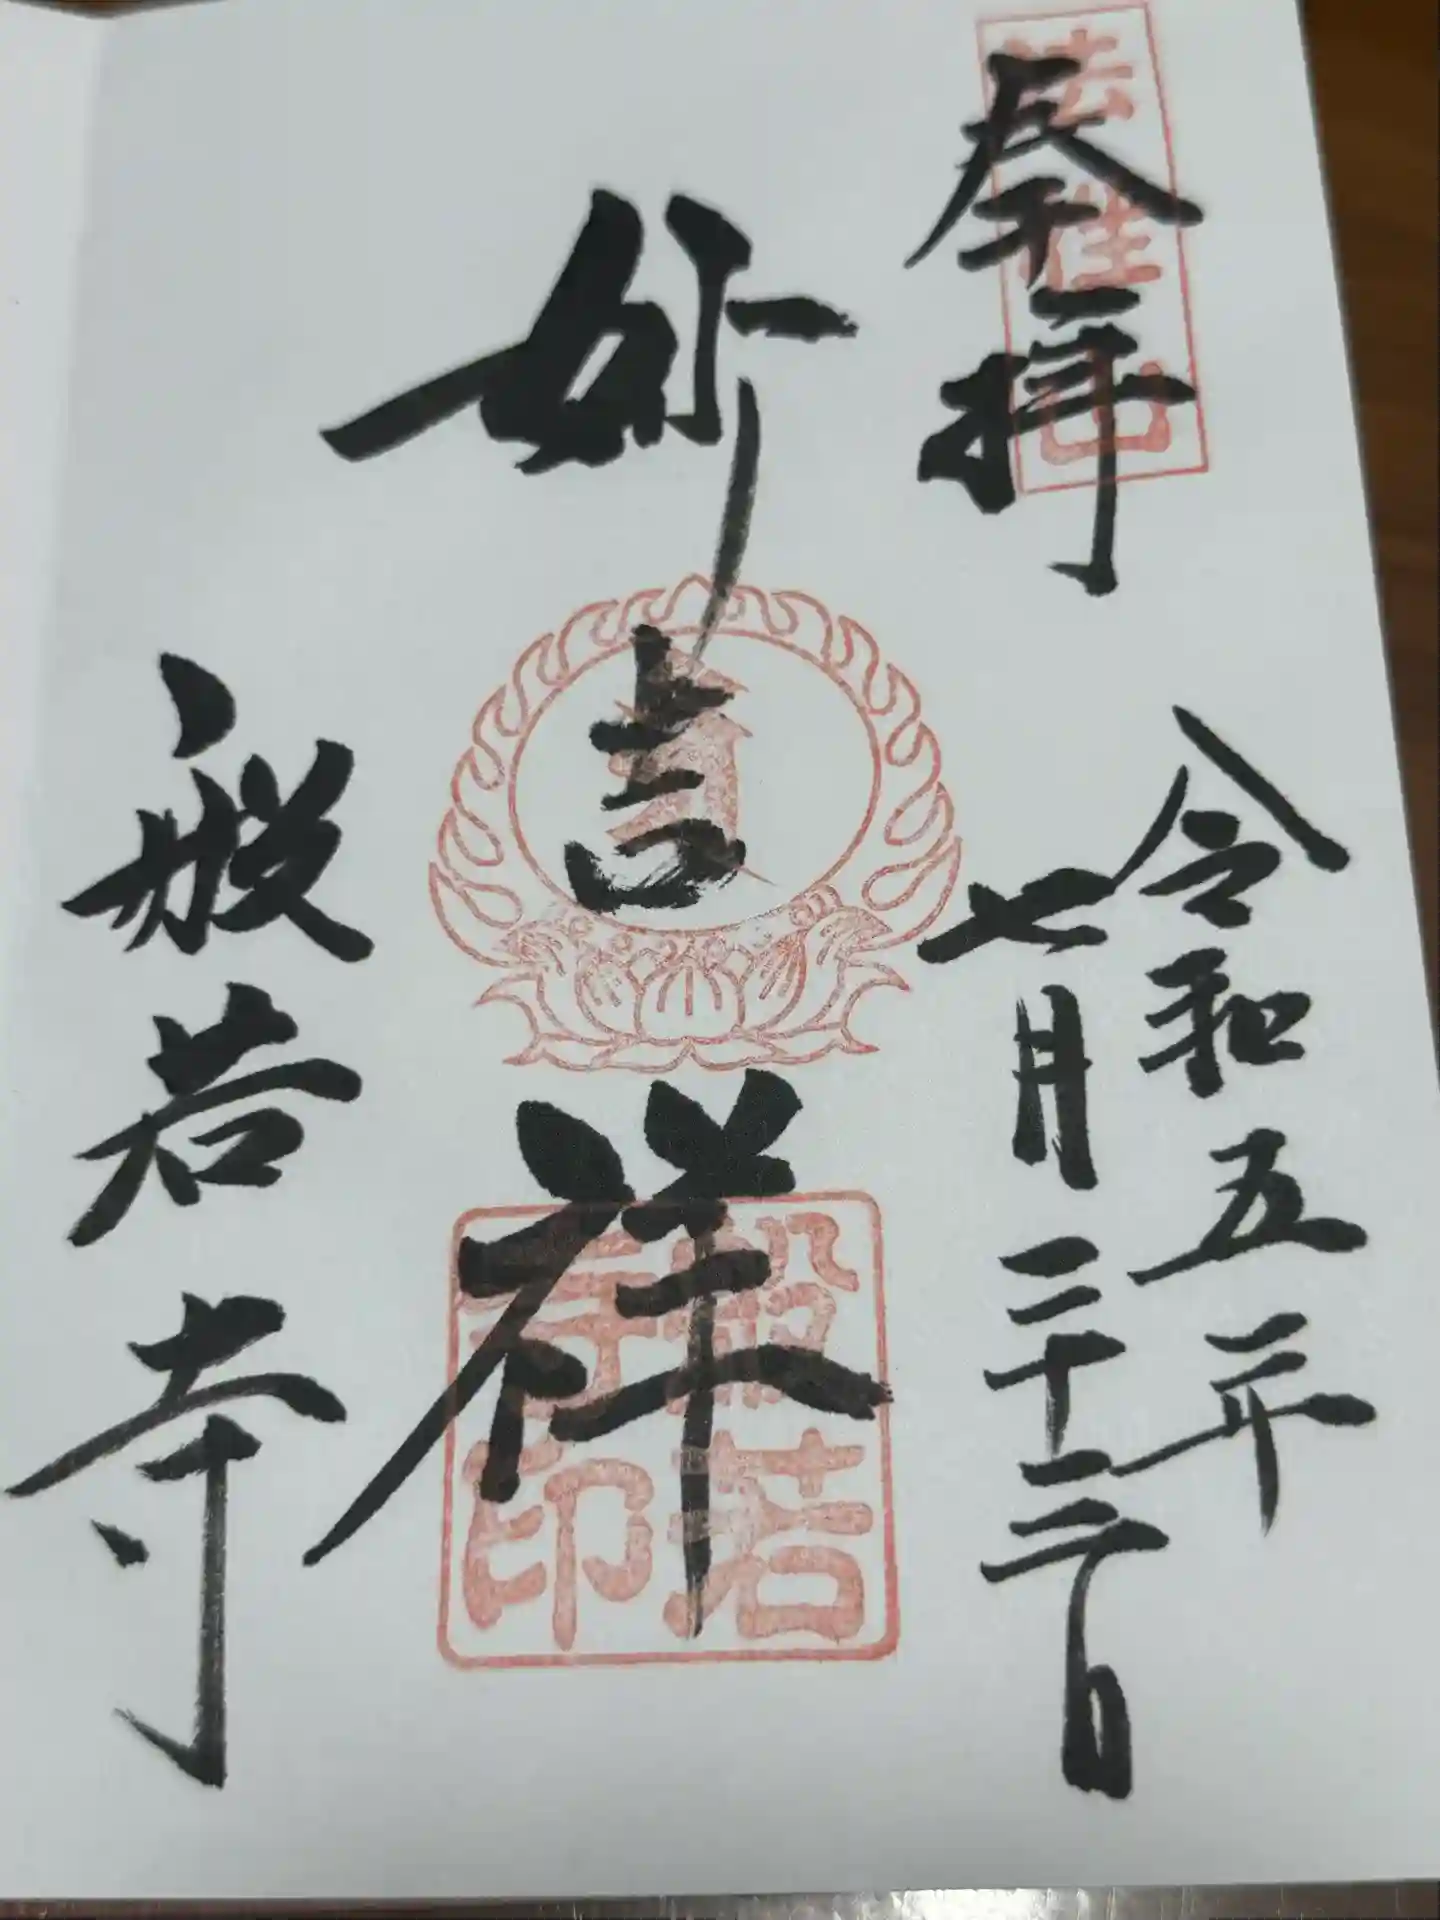 奉拝
法性山
令和五年
七月二十三日
妙吉祥
般若寺印
般若寺